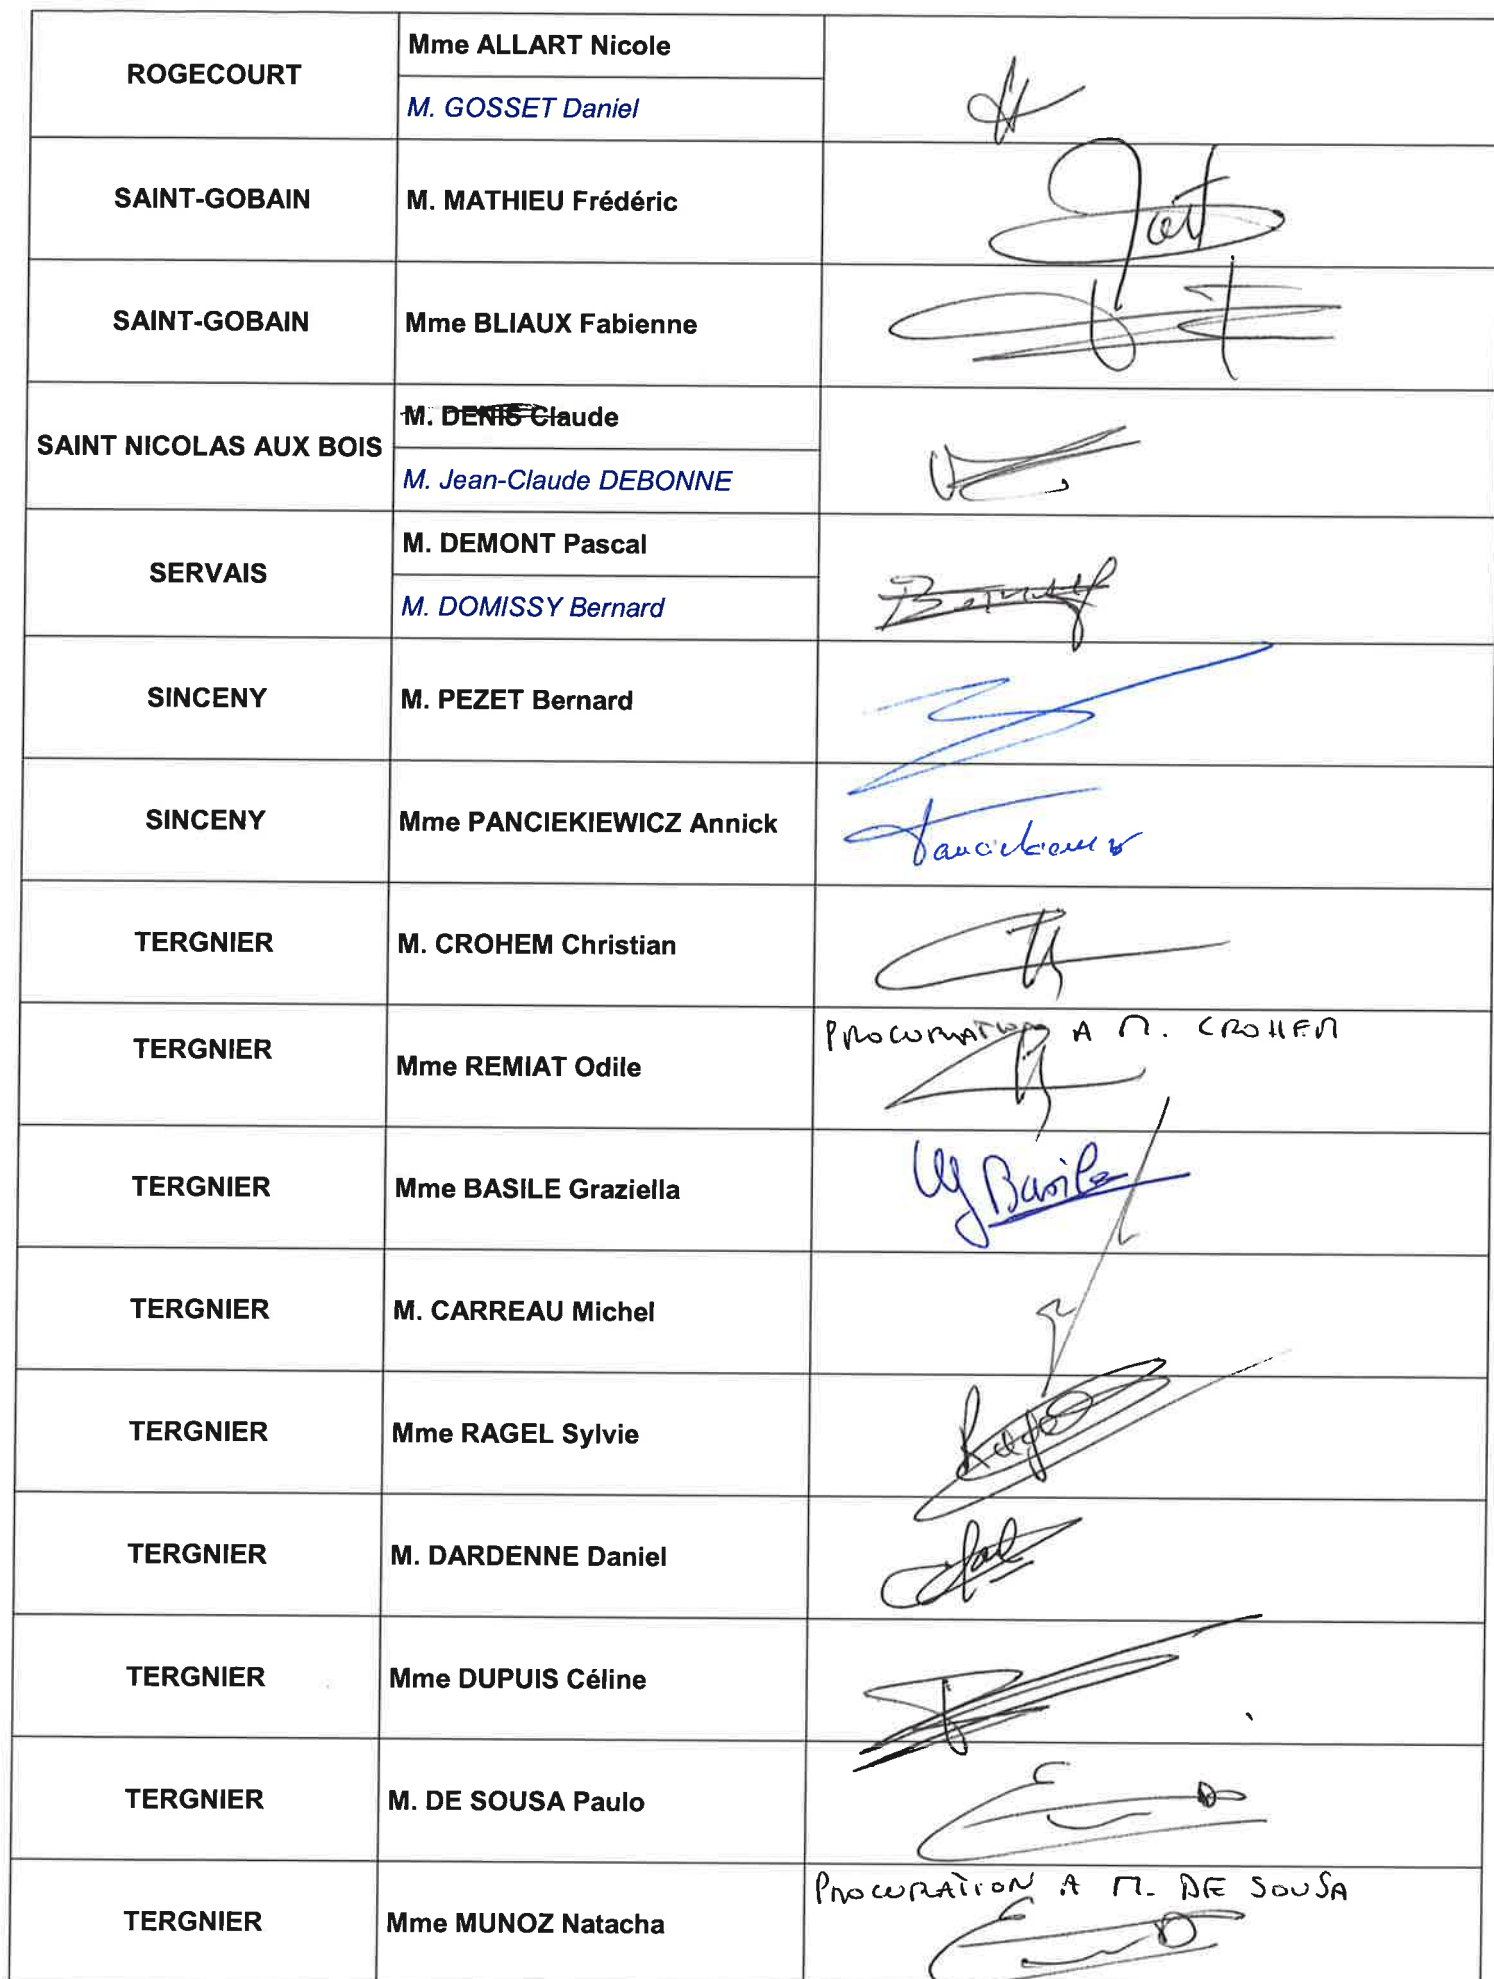 ROGECOURT
Mme ALLART Nicole
M. GOSSET Daniel
SAINT-GOBAIN
M. MATHIEU Frédéric
SAINT-GOBAIN
Mme BLIAUX Fabienne
SAINT NICOLAS AUX BOIS
M. DENIS Claude
M. Jean-Claude DEBONNE
SERVAIS
M. DEMONT Pascal
M. DOMISSY Bernard
SINCENY
M. PEZET Bernard
SINCENY
Mme PANCIEKIEWICZ Annick
TERGNIER
M. CROHEM Christian
TERGNIER
Mme REMIAT Odile
PROCURATION A M. CROHEM
TERGNIER
Mme BASILE Graziella
Basile
TERGNIER
M. CARREAU Michel
TERGNIER
Mme RAGEL Sylvie
TERGNIER
M. DARDENNE Daniel
TERGNIER
Mme DUPUIS Céline
TERGNIER
M. DE SOUSA Paulo
TERGNIER
Mme MUNOZ Natacha
PROCURATION A M. DE SOUSA